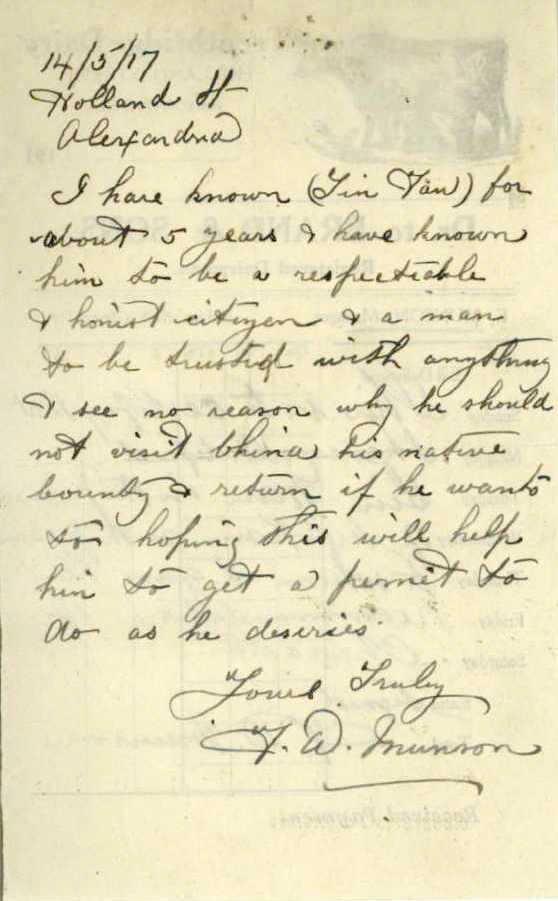 14/5/17
Holland St
Alexandria
I have known (Tin Fan) for
about 5 years & have known
him to be a respectiable
& honist citizen & a man
to be trusted with anything
& see no reason why he should
not visit China his native
Country & return if he wants
to hoping this will help
him to get a permit to
do as he deseries
Yours Truly
F. D. Munson
Received Payment